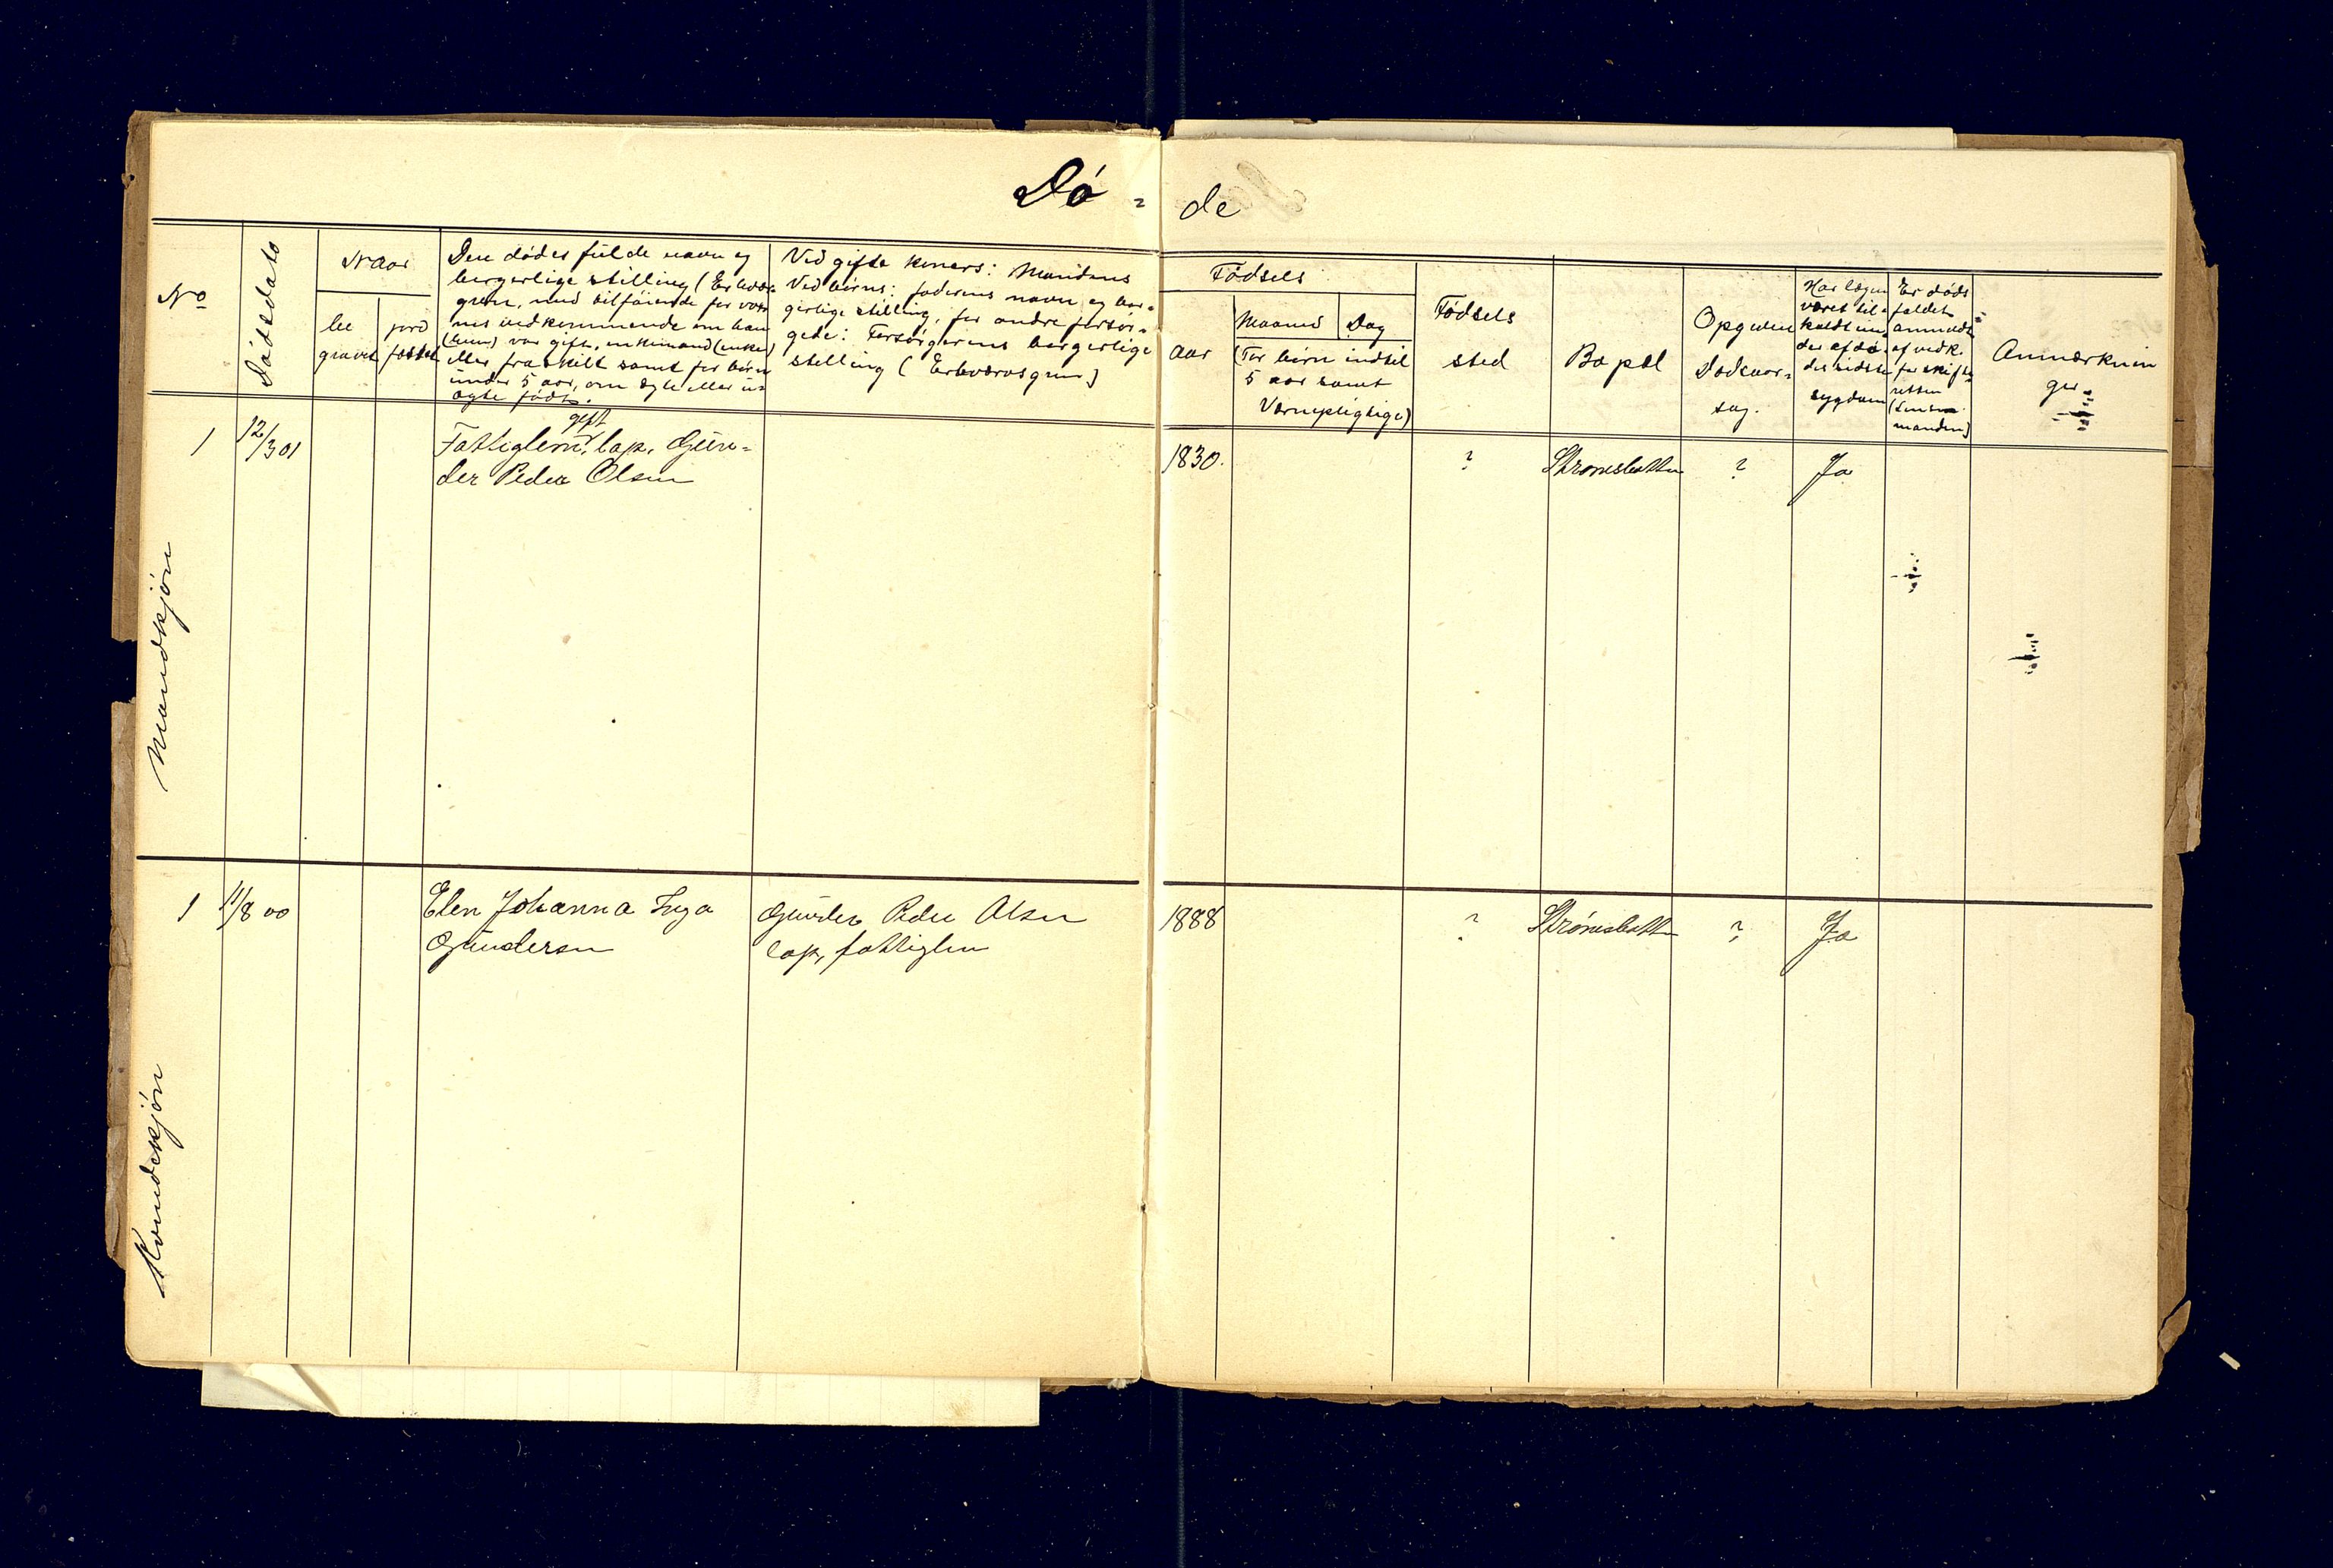 Dö - de
No
Dödsdato
Naar
be
gravet
jord
fæstet
Den dödes fulde navn og
borgerlige stilling (Erhvervs-
gren, med tilföiende for voks
nes indkommende om han
(hun) var gift, enkemand (enke)
eller fraskilt samt for börn
under 5 aar, om ægte eller u=
ægte födt.
Ved gifte koners: Mandens
Ved börns: faderens navn og bor=
gerlige stilling, for andre forsör=
gede: Forsörgerens borgerlige
stilling (Erhvervsgren)
Födsels
aar
Maaned
Dag
(For börn indtil
5 aar samt
Værnepligtige)
Födsels
sted
Bopæl
Opgiven
Dödsaar=
sag.
Har lægen
været til=
kaldt un
der afdö
des sidste
sygdom
Er döds
faldet
anmeldt
af vedk.
for skifte
retten
(Lens=
manden)
Anmærknin
ger
Mandkjön
1
12/3 01
gift
Fattiglem, lap. Gün=
der Peder Olsen
1830.
?
Strömsbotten
?
Ja
Kvindekjön
1
11/8 00
Elen Johanna Inga
Gündersen
Günder Peder Olsen
lap, fattiglem
1888
?
Strömsbotten
?
Ja